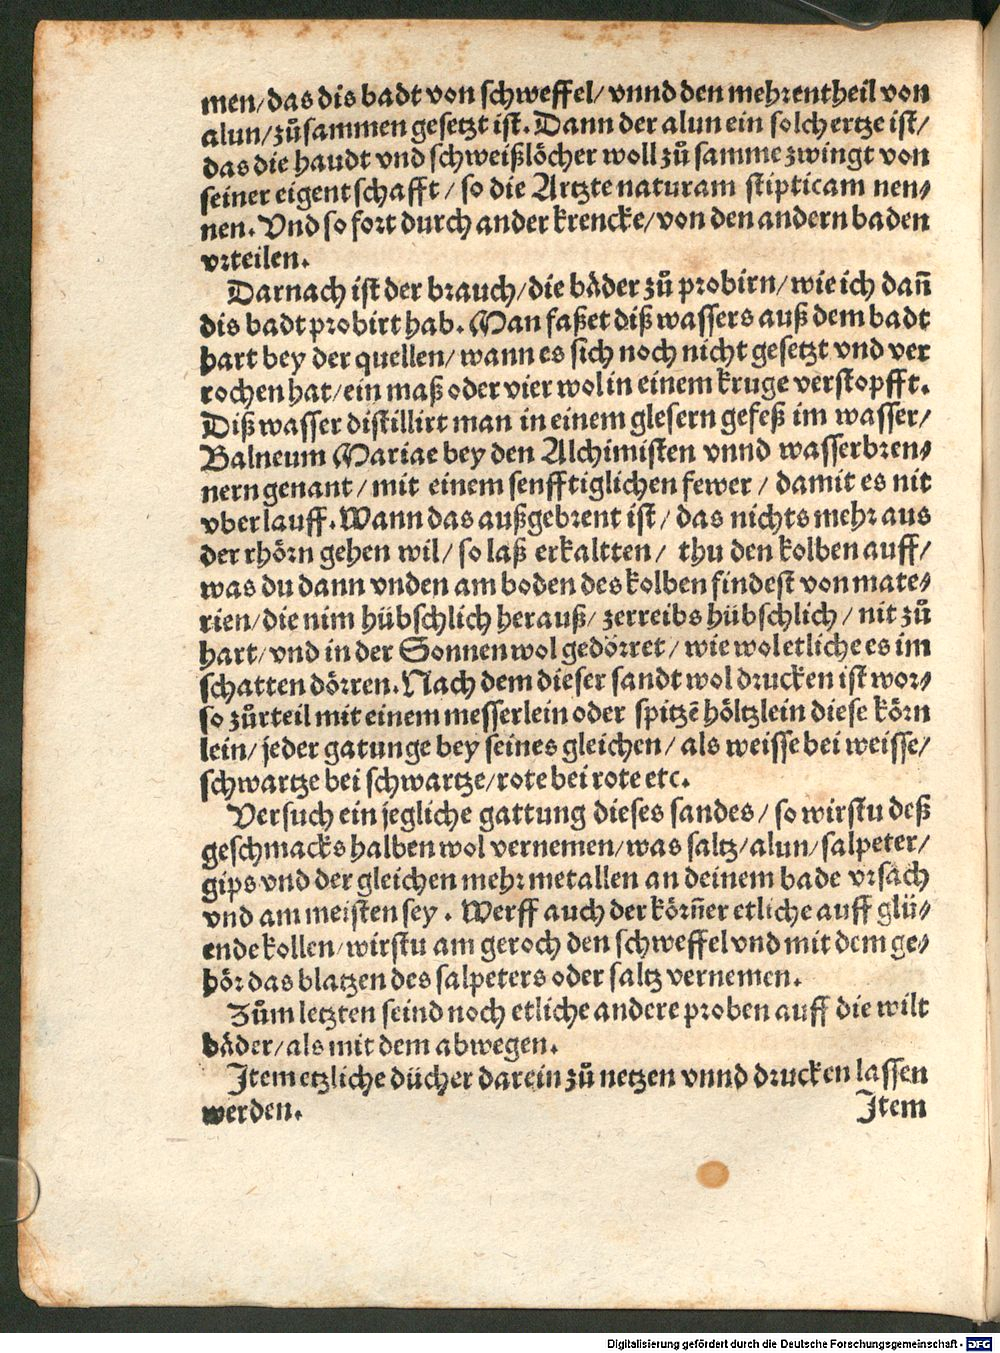 men/das dis badt von schweffel/vnnd den mehrentheil von
alun/zůsammen gesetzt ist. Dann der alun ein solch ertze ist/
das die haudt vnd schweißlöcher woll zů samme zwingt von
seiner eigentschafft/so die Artzte naturam stipticam nen⸗
nen. Vnd so fort durch ander krencke/von den andern baden
vrteilen.
Darnach ist der brauch/die bäder zů probirn/wie ich dañ
dis badt probirt hab. Man faßet diß wassers auß dem badt
hart bey der quellen/wann es sich noch nicht gesetzt vnd ver
rochen hat/ein maß oder vier wol in einem kruge verstopfft.
Diß wasser distillirt man in einem glesern gefeß im wasser/
Balneum Mariae bey den Alchimisten vnnd wasserbren⸗
nern genant/mit einem senfftiglichen fewer/damit es nit
vberlauff. Wann das außgebrent ist/das nichts mehr aus
der rhörn gehen wil/so laß erkaltten/thu den kolben auff/
was du dann vnden am boden des kolben findest von mate⸗
rien/die nim hübschlich herauß/zerreibs hübschlich/nit zů
hart/vnd in der Sonnen wol gedörret/wie wol etliche es im
schatten dörren. Nach dem dieser sandt wol drucken ist wor⸗
so zůrteil mit einem messerlein oder spitzē höltzlein diese körn
lein/jeder gatunge bey seines gleichen/als weisse bei weisse/
schwartze bei schwartze/rote bei rote etc.
Versuch ein jegliche gattung dieses sandes/so wirstu deß
geschmacks halben wol vernemen/was saltz/alun/salpeter/
gips vnd der gleichen mehr metallen an deinem bade vrsach
vnd am meisten sey. Werff auch der körñer etliche auff glü⸗
ende kollen/wirstu am geroch den schweffel vnd mit dem ge⸗
hör das blatzen des salpeters oder saltz vernemen.
Zům letzten seind noch etliche andere proben auff die wilt
bäder/als mit dem abwegen.
Item etzliche dücher darein zů netzen vnnd drucken lassen
werden. Item
Digitalisierung gefördert durch die Deutsche Forschungsgemeinschaft - DFG